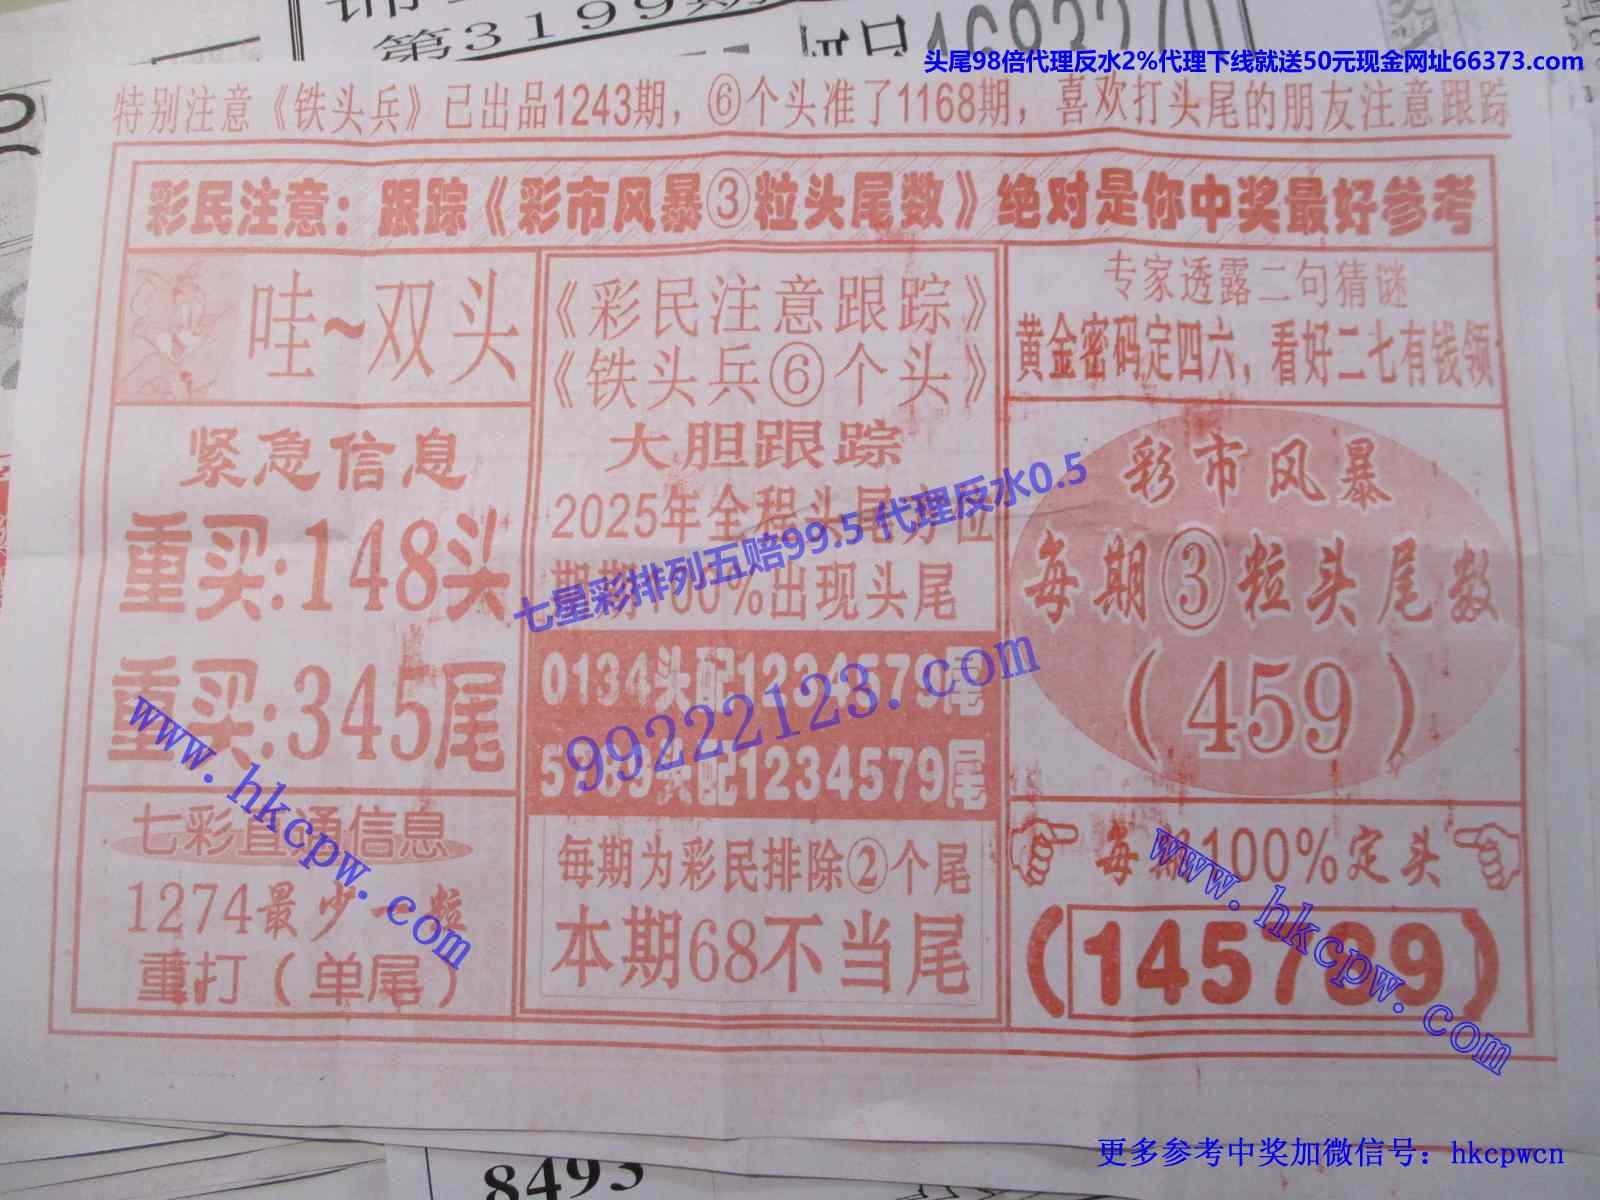 第3199期
头尾98倍代理反水2%代理下线就送50元现金网址66373.com
特别注意《铁头兵》已出品1243期，⑥个头准了1168期，喜欢打头尾的朋友注意跟踪
彩民注意：跟踪《彩市风暴③粒头尾数》绝对是你中奖最好参考
哇~双头
紧急信息
重买:148头
重买:345尾
七彩直通信息
1274最少一粒
重打（单尾）
《彩民注意跟踪》
《铁头兵⑥个头》
大胆跟踪
2025年全程头尾方位
期期100%出现头尾
0134头配1234579尾
5789头配1234579尾
每期为彩民排除②个尾
本期68不当尾
专家透露二句猜谜
黄金密码定四六，看好二七有钱领
彩市风暴
每期③粒头尾数
（459）
每期100%定头
（145789）
七星彩排列五赔99.5 代理反水0.5
99222123.com
www.hkcpw.com
www.hkcpw.com
更多参考中奖加微信号：hkcpwcn
8493